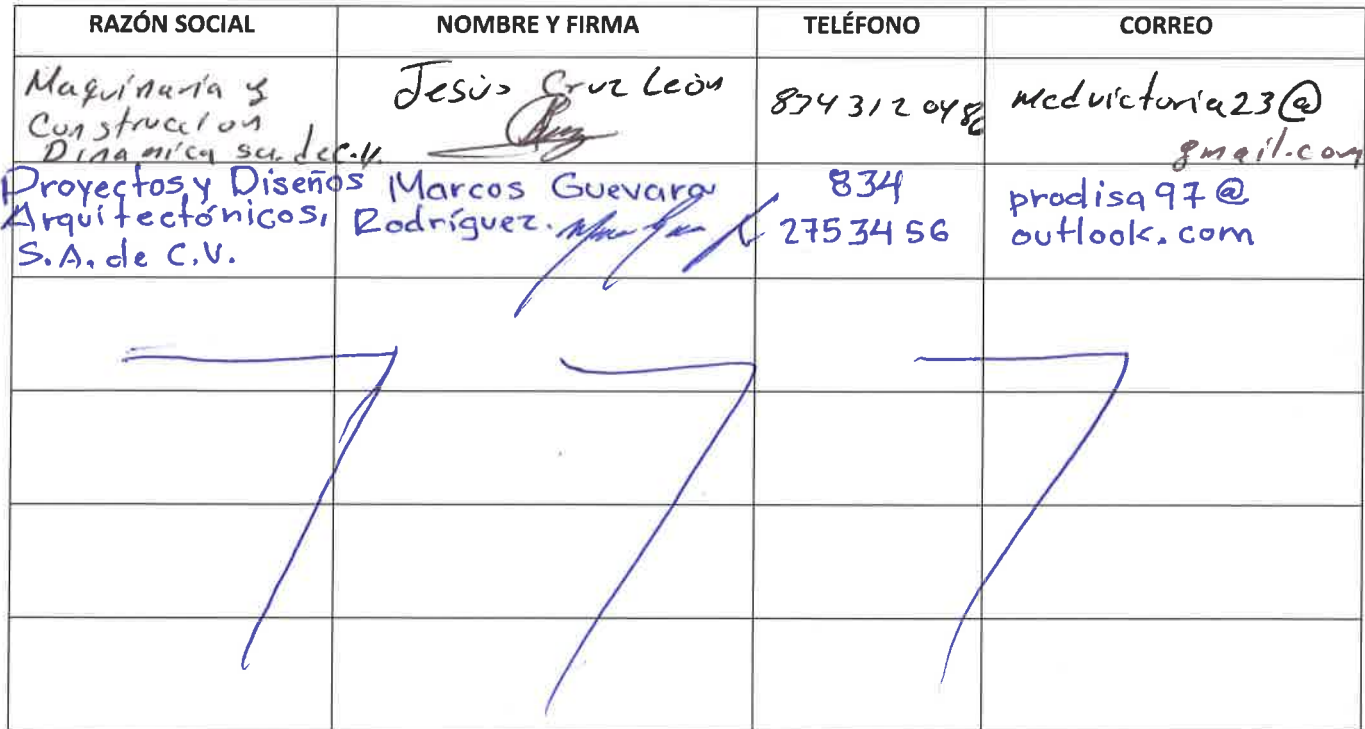 RAZÓN SOCIAL NOMBRE Y FIRMA TELÉFONO CORREO
Maquinaria y
Construccion
Dinamica s.a. de c.v.
Jesús Cruz León
834 312 0486
mcdvictoria23@
gmail.com
Proyectos y Diseños
Arquitectónicos,
S.A. de C.V.
Marcos Guevara
Rodríguez.
834
2753456
prodisa97@
outlook.com